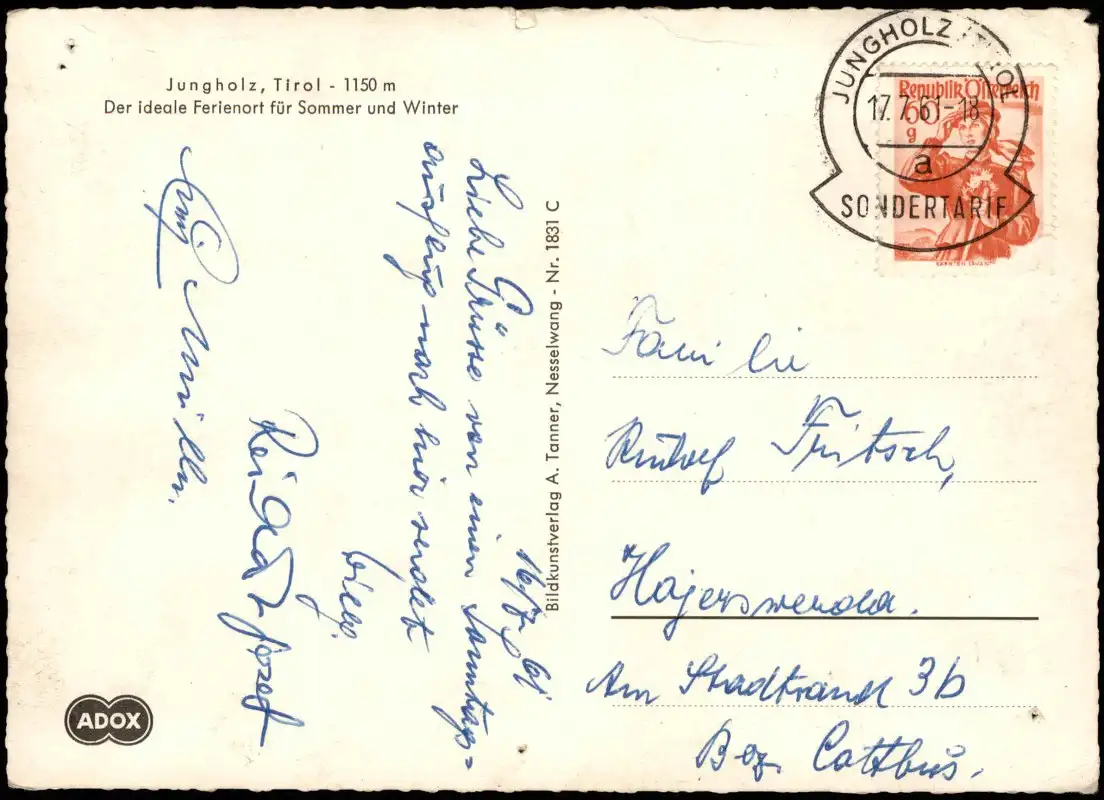 Jungholz, Tirol - 1150 m
Der ideale Ferienort für Sommer und Winter
JUNGHOLZ TIROL
17.7.61-18
a
SONDERTARIF
Republik Österreich
60
g
16/7. 61
Liebe Grüsse von einem Sonntags=
ausflug nach hier sendet
Reinhold Josef
Müller.
Bildkunstverlag A. Tanner, Nesselwang - Nr. 1831 C
Familie
Rudolf Fritsch,
Hojerswerda.
Am Stadtrand 3b
Bez. Cottbus.
ADOX